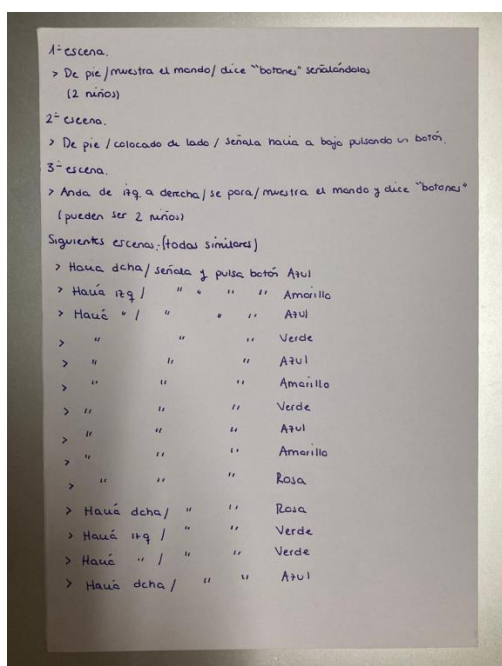 1ª escena.
> De pie / muestra el mando / dice "botones" señalándolos
(2 niños)
2ª escena.
> De pie / colocado de lado / señala hacia a bajo pulsando un botón.
3ª escena.
> Anda de izq a derecha / se para / muestra el mando y dice "botones"
(pueden ser 2 niños)
Siguientes escenas: (todas similares)
> Hacia dcha / señala y pulsa botón Azul
> Hacia izq / " " " " Amarillo
> Hacia " / " " " Azul
> " " " Verde
> " " " Azul
> " " " Amarillo
> " " " Verde
> " " " Azul
> " " " Amarillo
> " " " Rosa
> Hacia dcha / " " Rosa
> Hacia izq / " " Verde
> Hacia " / " " Verde
> Hacia dcha / " " Azul